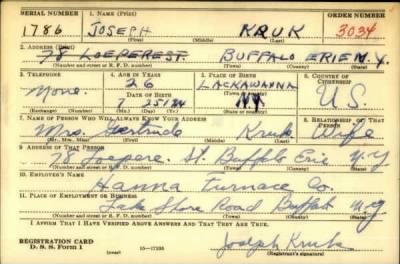 SERIAL NUMBER 1. NAME (Print) ORDER NUMBER
1786 JOSEPH KRUK 3034
(First) (Middle) (Last)
2. ADDRESS (Print)
78 LOEPERE ST. BUFFALO ERIE N.Y.
(Number and street or R. F. D. number) (Town) (County) (State)
3. TELEPHONE 4. AGE IN YEARS 5. PLACE OF BIRTH 6. COUNTRY OF CITIZENSHIP
None. 26 LACKAWANNA U.S.
DATE OF BIRTH (Town or county)
7 25 N.Y.
(Exchange) (Number) (Mo.) (Day) (Yr.) (State or country)
7. NAME OF PERSON WHO WILL ALWAYS KNOW YOUR ADDRESS 8. RELATIONSHIP OF THAT PERSON
Mrs. Gertrude Kruk Wife
(Mr., Mrs., Miss) (First) (Middle) (Last)
9. ADDRESS OF THAT PERSON
78 Loepere. St. Buffalo Erie N.Y
(Number and street or R. F. D. number) (Town) (County) (State)
10. EMPLOYER'S NAME
Hanna Furnace Co.
11. PLACE OF EMPLOYMENT OR BUSINESS
Lake Shore Road Buffalo N.Y
(Number and street or R. F. D. number) (Town) (County) (State)
I AFFIRM THAT I HAVE VERIFIED ABOVE ANSWERS AND THAT THEY ARE TRUE.
REGISTRATION CARD
D. S. S. Form 1 (over) Joseph Kruk
(Registrant's signature)